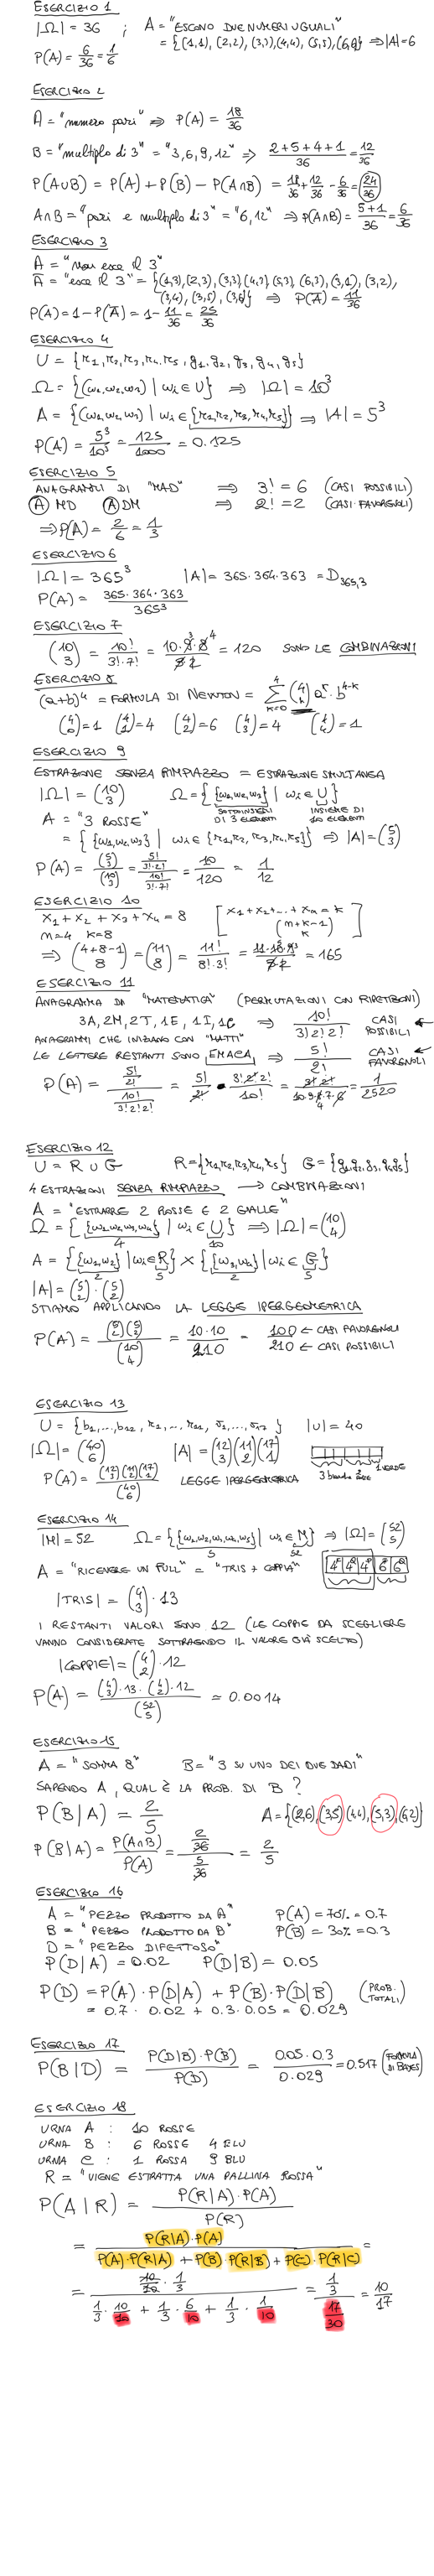 ESERCIZIO 1
|Ω| = 36 ; A = "ESCONO DUE NUMERI UGUALI"
= {(1,1), (2,2), (3,3), (4,4), (5,5), (6,6)} ⇒ |A| = 6
P(A) = 6/36 = 1/6
ESERCIZIO 2
A = "numero pari" ⇒ P(A) = 18/36
B = "multiplo di 3" = "3, 6, 9, 12" ⇒ (2+5+4+1)/36 = 12/36
P(A∪B) = P(A) + P(B) - P(A∩B) = 18/36 + 12/36 - 6/36 = 24/36
A∩B = "pari e multiplo di 3" = "6, 12" ⇒ P(A∩B) = (5+1)/36 = 6/36
ESERCIZIO 3
A = "non esce il 3"
Ā = "esce il 3" = {(1,3), (2,3), (3,3), (4,3), (5,3), (6,3), (3,1), (3,2),
(3,4), (3,5), (3,6)} ⇒ P(Ā) = 11/36
P(A) = 1 - P(Ā) = 1 - 11/36 = 25/36
ESERCIZIO 4
U = {r1, r2, r3, r4, r5, g1, g2, g3, g4, g5}
Ω = {(ω1, ω2, ω3) | ωi ∈ U} ⇒ |Ω| = 10³
A = {(ω1, ω2, ω3) | ωi ∈ {r1, r2, r3, r4, r5}} ⇒ |A| = 5³
P(A) = 5³/10³ = 125/1000 = 0.125
ESERCIZIO 5
ANAGRAMMI DI "MAD" ⇒ 3! = 6 (CASI POSSIBILI)
A MD A DM ⇒ 2! = 2 (CASI FAVOREVOLI)
⇒ P(A) = 2/6 = 1/3
ESERCIZIO 6
|Ω| = 365³ |A| = 365·364·363 = D365,3
P(A) = 365·364·363/365³
ESERCIZIO 7
(10 3) = 10!/(3!·7!) = 10·9·8/(3·2) = 120 SONO LE COMBINAZIONI
ESERCIZIO 8
(a+b)⁴ = FORMULA DI NEWTON = Σ k=0 4 (4 k) aᵏ · b⁴⁻ᵏ
(4 0) = 1 (4 1) = 4 (4 2) = 6 (4 3) = 4 (4 4) = 1
ESERCIZIO 9
ESTRAZIONE SENZA RIMPIAZZO = ESTRAZIONE SIMULTANEA
|Ω| = (10 3) Ω = {{ω1, ω2, ω3} | ωi ∈ U}
SOTTOINSIEMI DI 3 ELEMENTI INSIEME DI 10 ELEMENTI
A = "3 ROSSE"
= {{ω1, ω2, ω3} | ωi ∈ {r1, r2, r3, r4, r5}} ⇒ |A| = (5 3)
P(A) = (5 3)/(10 3) = (5!/(3!·2!))/(10!/(3!·7!)) = 10/120 = 1/12
ESERCIZIO 10
x1 + x2 + x3 + x4 = 8 [x1 + x2 + ... + xn = k
n=4 k=8 (n+k-1 k)]
⇒ (4+8-1 8) = (11 8) = 11!/(8!·3!) = 11·10·9/(3·2) = 165
ESERCIZIO 11
ANAGRAMMA DI "MATEMATICA" (PERMUTAZIONI CON RIPETIZIONI)
3A, 2M, 2T, 1E, 1I, 1C ⇒ 10!/(3!2!2!) CASI POSSIBILI ←
ANAGRAMMI CHE INIZIANO CON "MATTI"
LE LETTERE RESTANTI SONO EMACA ⇒ 5!/2! CASI FAVOREVOLI ←
P(A) = (5!/2!)/(10!/(3!2!2!)) = 5!/2! · 3!2!2!/10! = 3!2!/(10·9·8·7·6) = 1/2520
ESERCIZIO 12
U = R ∪ G R = {r1, r2, r3, r4, r5} G = {g1, g2, g3, g4, g5}
4 ESTRAZIONI SENZA RIMPIAZZO → COMBINAZIONI
A = "ESTRARRE 2 ROSSE E 2 GIALLE"
Ω = {{ω1, ω2, ω3, ω4} | ωi ∈ U} ⇒ |Ω| = (10 4)
4 10
A = {{ω1, ω2} | ωi ∈ R} × {{ω3, ω4} | ωi ∈ G}
2 5 2 5
|A| = (5 2)·(5 2)
STIAMO APPLICANDO LA LEGGE IPERGEOMETRICA
P(A) = (5 2)(5 2)/(10 4) = 10·10/210 = 100 ← CASI FAVOREVOLI / 210 ← CASI POSSIBILI
ESERCIZIO 13
U = {b1, ..., b12, r1, ..., r11, v1, ..., v17} |U| = 40
|Ω| = (40 6) |A| = (12 3)(11 2)(17 1)
3 bianche 2 rosse 1 VERDE
P(A) = (12 3)(11 2)(17 1)/(40 6) LEGGE IPERGEOMETRICA
ESERCIZIO 14
|M| = 52 Ω = {{ω1, ω2, ω3, ω4, ω5} | ωi ∈ M} ⇒ |Ω| = (52 5)
5 52
A = "RICEVERE UN FULL" = "TRIS + COPPIA" 4 4 4 6 6
|TRIS| = (4 3)·13
I RESTANTI VALORI SONO 12 (LE COPPIE DA SCEGLIERE
VANNO CONSIDERATE SOTTRAENDO IL VALORE GIÀ SCELTO)
|COPPIE| = (4 2)·12
P(A) = (4 3)·13·(4 2)·12/(52 5) = 0.0014
ESERCIZIO 15
A = "SOMMA 8" B = "3 SU UNO DEI DUE DADI"
SAPENDO A, QUAL È LA PROB. DI B?
P(B|A) = 2/5 A = {(2,6), (3,5), (4,4), (5,3), (6,2)}
P(B|A) = P(A∩B)/P(A) = (2/36)/(5/36) = 2/5
ESERCIZIO 16
A = "PEZZO PRODOTTO DA A" P(A) = 70% = 0.7
B = "PEZZO PRODOTTO DA B" P(B) = 30% = 0.3
D = "PEZZO DIFETTOSO"
P(D|A) = 0.02 P(D|B) = 0.05
P(D) = P(A)·P(D|A) + P(B)·P(D|B) (PROB. TOTALI)
= 0.7 · 0.02 + 0.3 · 0.05 = 0.029
ESERCIZIO 17
P(B|D) = P(D|B)·P(B)/P(D) = 0.05·0.3/0.029 = 0.517 (FORMULA DI BAYES)
ESERCIZIO 18
URNA A : 10 ROSSE
URNA B : 6 ROSSE 4 BLU
URNA C : 1 ROSSA 9 BLU
R = "VIENE ESTRATTA UNA PALLINA ROSSA"
P(A|R) = P(R|A)·P(A)/P(R)
= P(R|A)·P(A)/(P(A)·P(R|A) + P(B)·P(R|B) + P(C)·P(R|C)) =
= (10/10 · 1/3)/(1/3 · 10/10 + 1/3 · 6/10 + 1/3 · 1/10) = (1/3)/(17/30) = 10/17